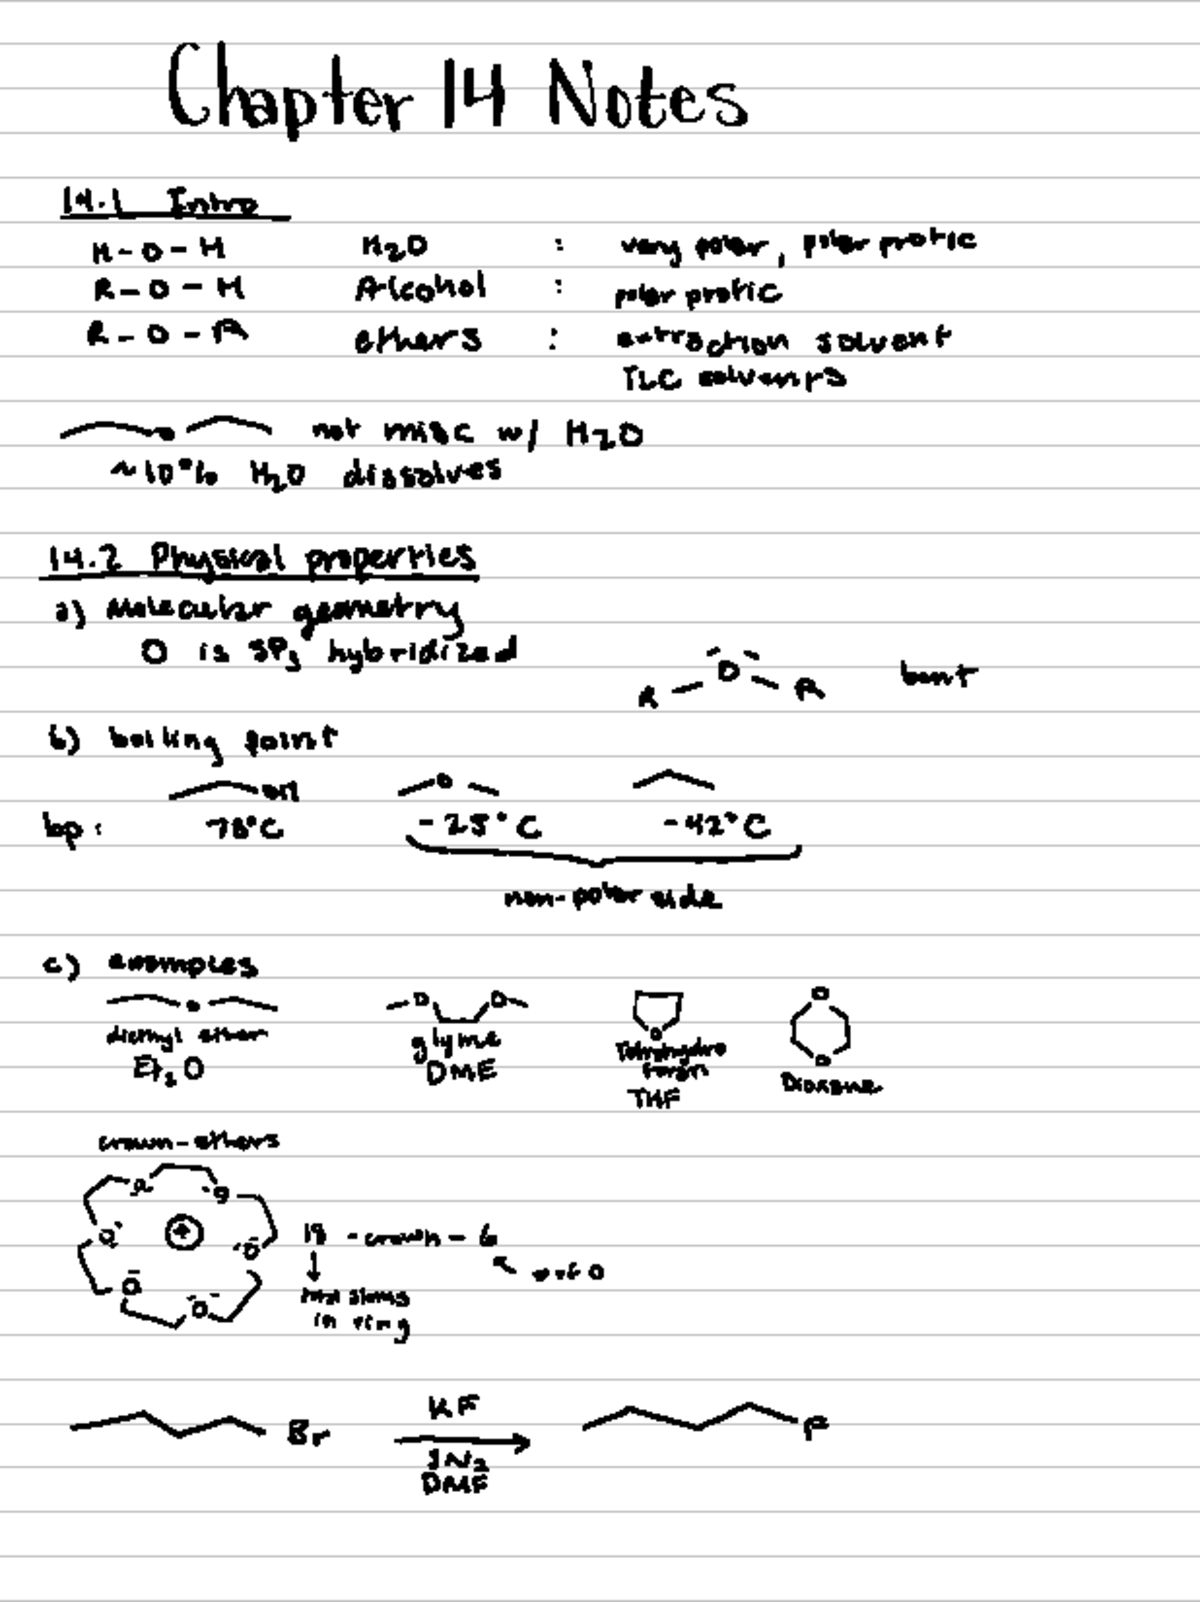 Chapter 14 Notes
14.1 Intro
H-O-H H2O : very polar, polar protic
R-O-H Alcohol : polar protic
R-O-R ethers : extraction solvent
TLC solvents
O not misc w/ H2O
~10% H2O dissolves
14.2 Physical properties
a) Molecular geometry
O is SP3 hybridized
R-O-R bent
b) boiling point
OH O
bp: 78°C -25°C -42°C
non-polar side
c) examples
O O O O O O
diethyl ether glyme Tetrahydro Dioxane
Et2O DME furan
THF
crown-ethers
O O
O + O 18-crown-6
O O # of O
total atoms
in ring
Br KF F
SN2
DMF